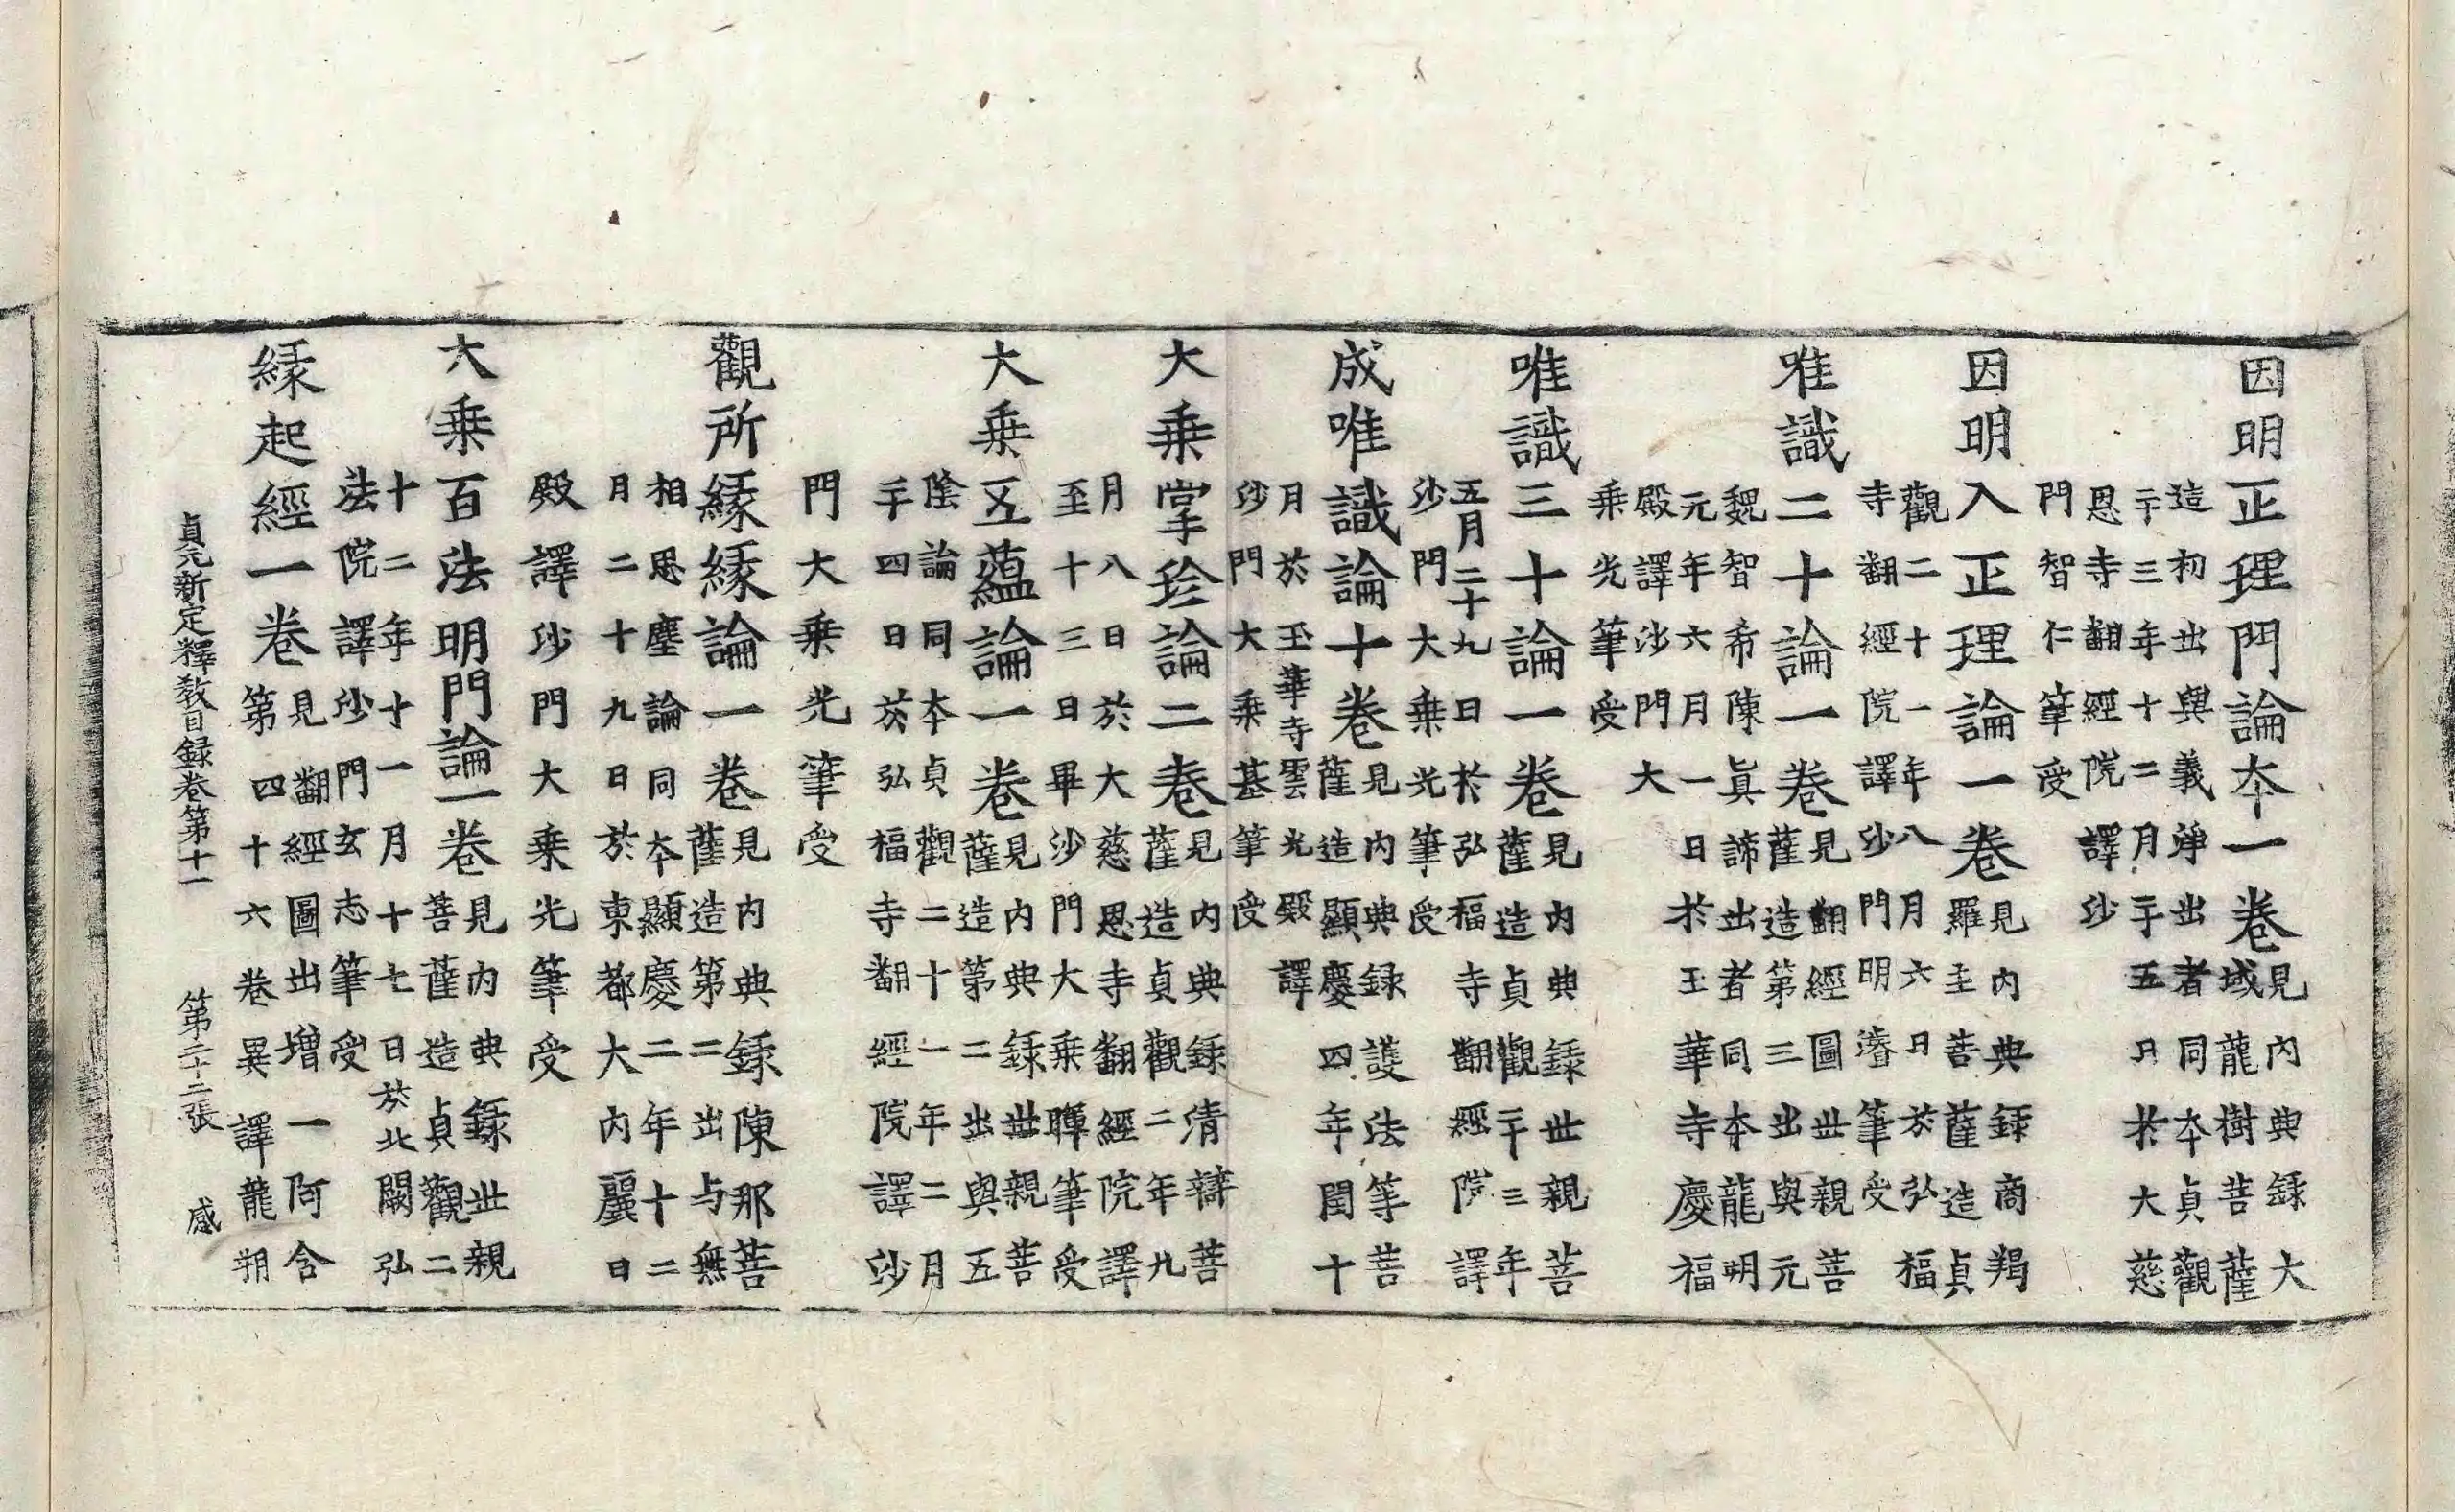 因明正理門論本一卷見內典錄大
域龍樹菩薩
造初出與義淨出者同本貞觀
二十三年十二月二十五日於大慈
恩寺翻經院譯沙
門智仁筆受
因明入正理論一卷見內典錄商羯
羅主菩薩造貞
觀二十一年八月六日於弘福
寺翻經院譯沙門明濬筆受
唯識二十論一卷見翻經圖世親菩
薩造第三出與元
魏智希陳眞諦出者同本龍明
元年六月一日於玉華寺慶福
殿譯沙門大
乗光筆受
唯識三十論一卷見內典錄世親菩
薩造貞觀二十三年
五月二十九日於弘福寺翻經院譯
沙門大乗光筆受
成唯識論十卷見內典錄護法等菩
薩造顯慶四年閏十
月於玉華寺雲光殿譯
沙門大乗基筆受
大乗掌珍論二卷見內典錄清辯菩
薩造貞觀二年九
月八日於大慈恩寺翻經院譯
至十三日畢沙門大乗暉筆受
大乗五蘊論一卷見內典錄世親菩
薩造第二出與五
陰論同本貞觀二十一年二月
二十四日於弘福寺翻經院譯沙
門大乗光筆受
觀所緣緣論一卷見內典錄陳那菩
薩造第二出与無
相思塵論同本顯慶二年十二
月二十九日於東都大內麗日
殿譯沙門大乗光筆受
大乗百法明門論一卷見內典錄世親
菩薩造貞觀二
十二年十一月十七日於北闕弘
法院譯沙門玄志筆受
緣起經一卷見翻經圖出增一阿含
第四十六卷異譯龍朔
貞元新定釋教目録卷第十一 第二十二張 感